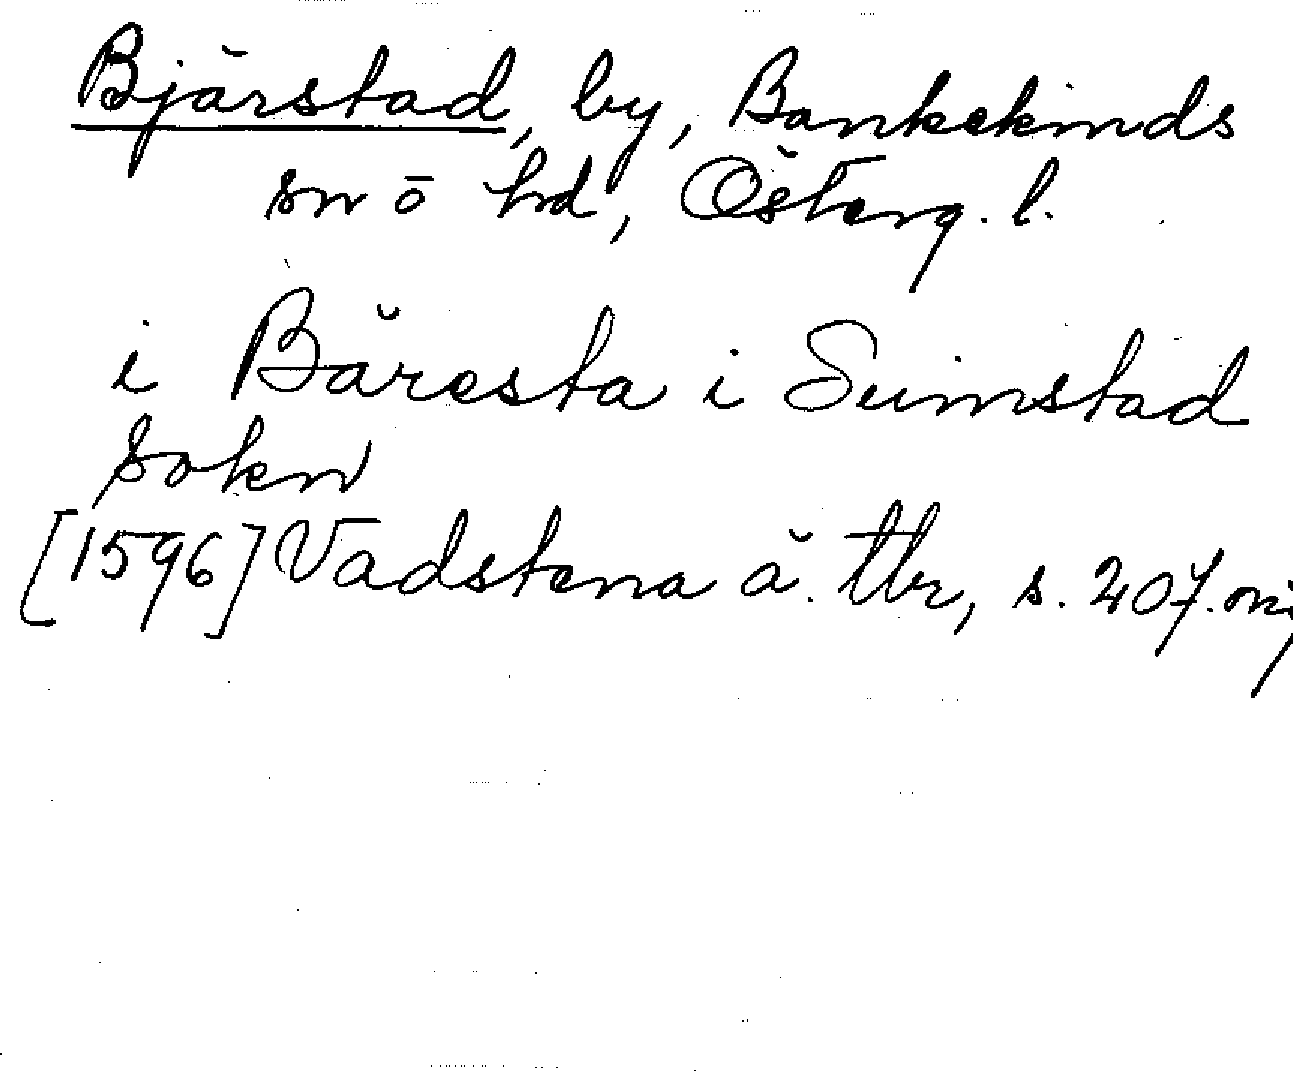 Bjärstad, by, Bankekinds
sn o hd, Österg. l.
i Bäresta i Suinstad
sokn
[1596] Vadstena ä. tbr, s. 207. orig